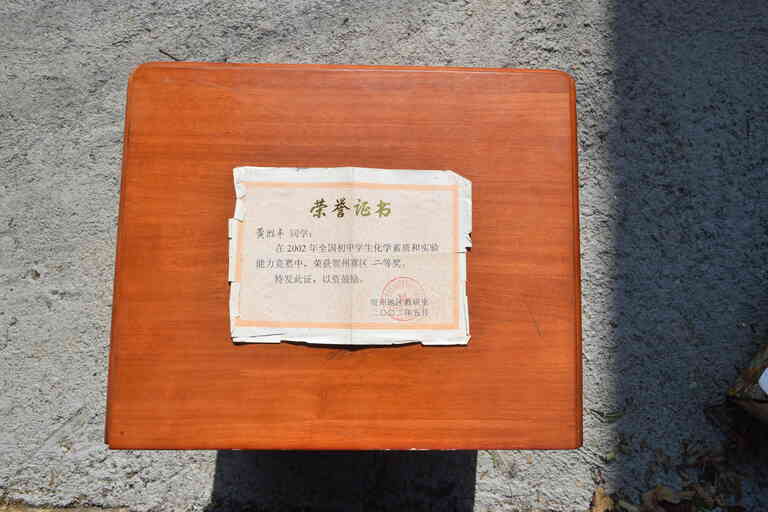 荣誉证书
黄烈丰 同学：
在 2002 年全国初中学生化学素质和实验
能力竞赛中，荣获贺州赛区 二等奖。
特发此证，以资鼓励。
贺州地区教研室
二〇〇二年五月